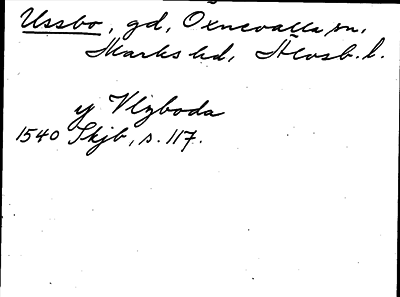 Ussbo, gd, Öxnevalla sn,
Marks hd, Älvsb. l.
y Vlzboda
1540 Skjb, s. 117.